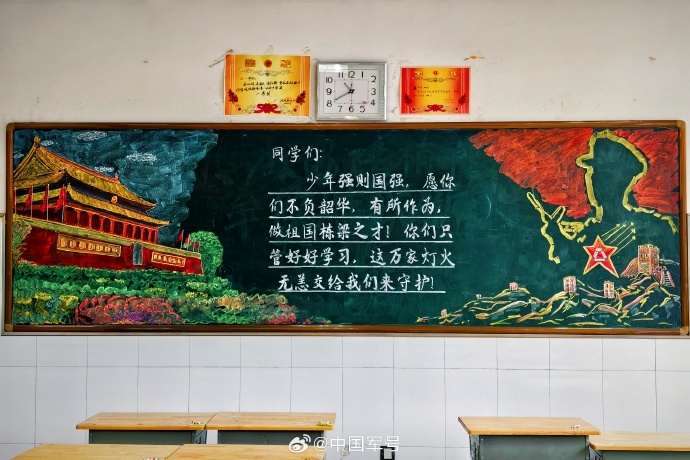 同学们:
少年强则国强，愿你
们不负韶华，有所作为，
做祖国栋梁之才！你们只
管好好学习，这万家灯火
无恙交给我们来守护！
12
1
2
3
4
5
6
7
8
9
10
11
@中国军号